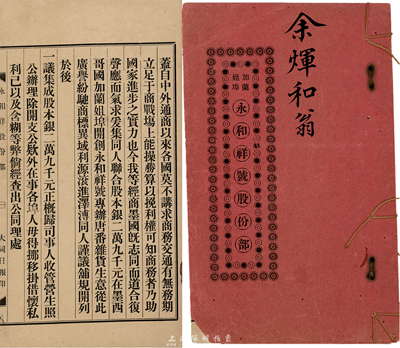 蓋自中外通商以來各國莫不講求商務交通有無務期
立足于商戰塲上能操勝算以挽利權可知商務者乃助
國家進步之實力也今我等經商墨國旣志同而道合復
聲應而氣求爰集同人聯合股本銀二萬九千元在墨西
哥國加蘭姐埠開創永和祥號專辦唐番雜貨生意從此
廣譽紛馳商標異域利源滾進澤溥同人謹議舖規開列
於後
一議集成股本銀二萬九千元正槪歸司事人收管營生照
公辦理除開支公數外在事各員人毋得挪移掛借懷私
利己以及含糊等弊倘經查出公同理處
永和祥股份部
一
大同日報印
余煇和翁
加蘭
姐埠
永和祥號股份部